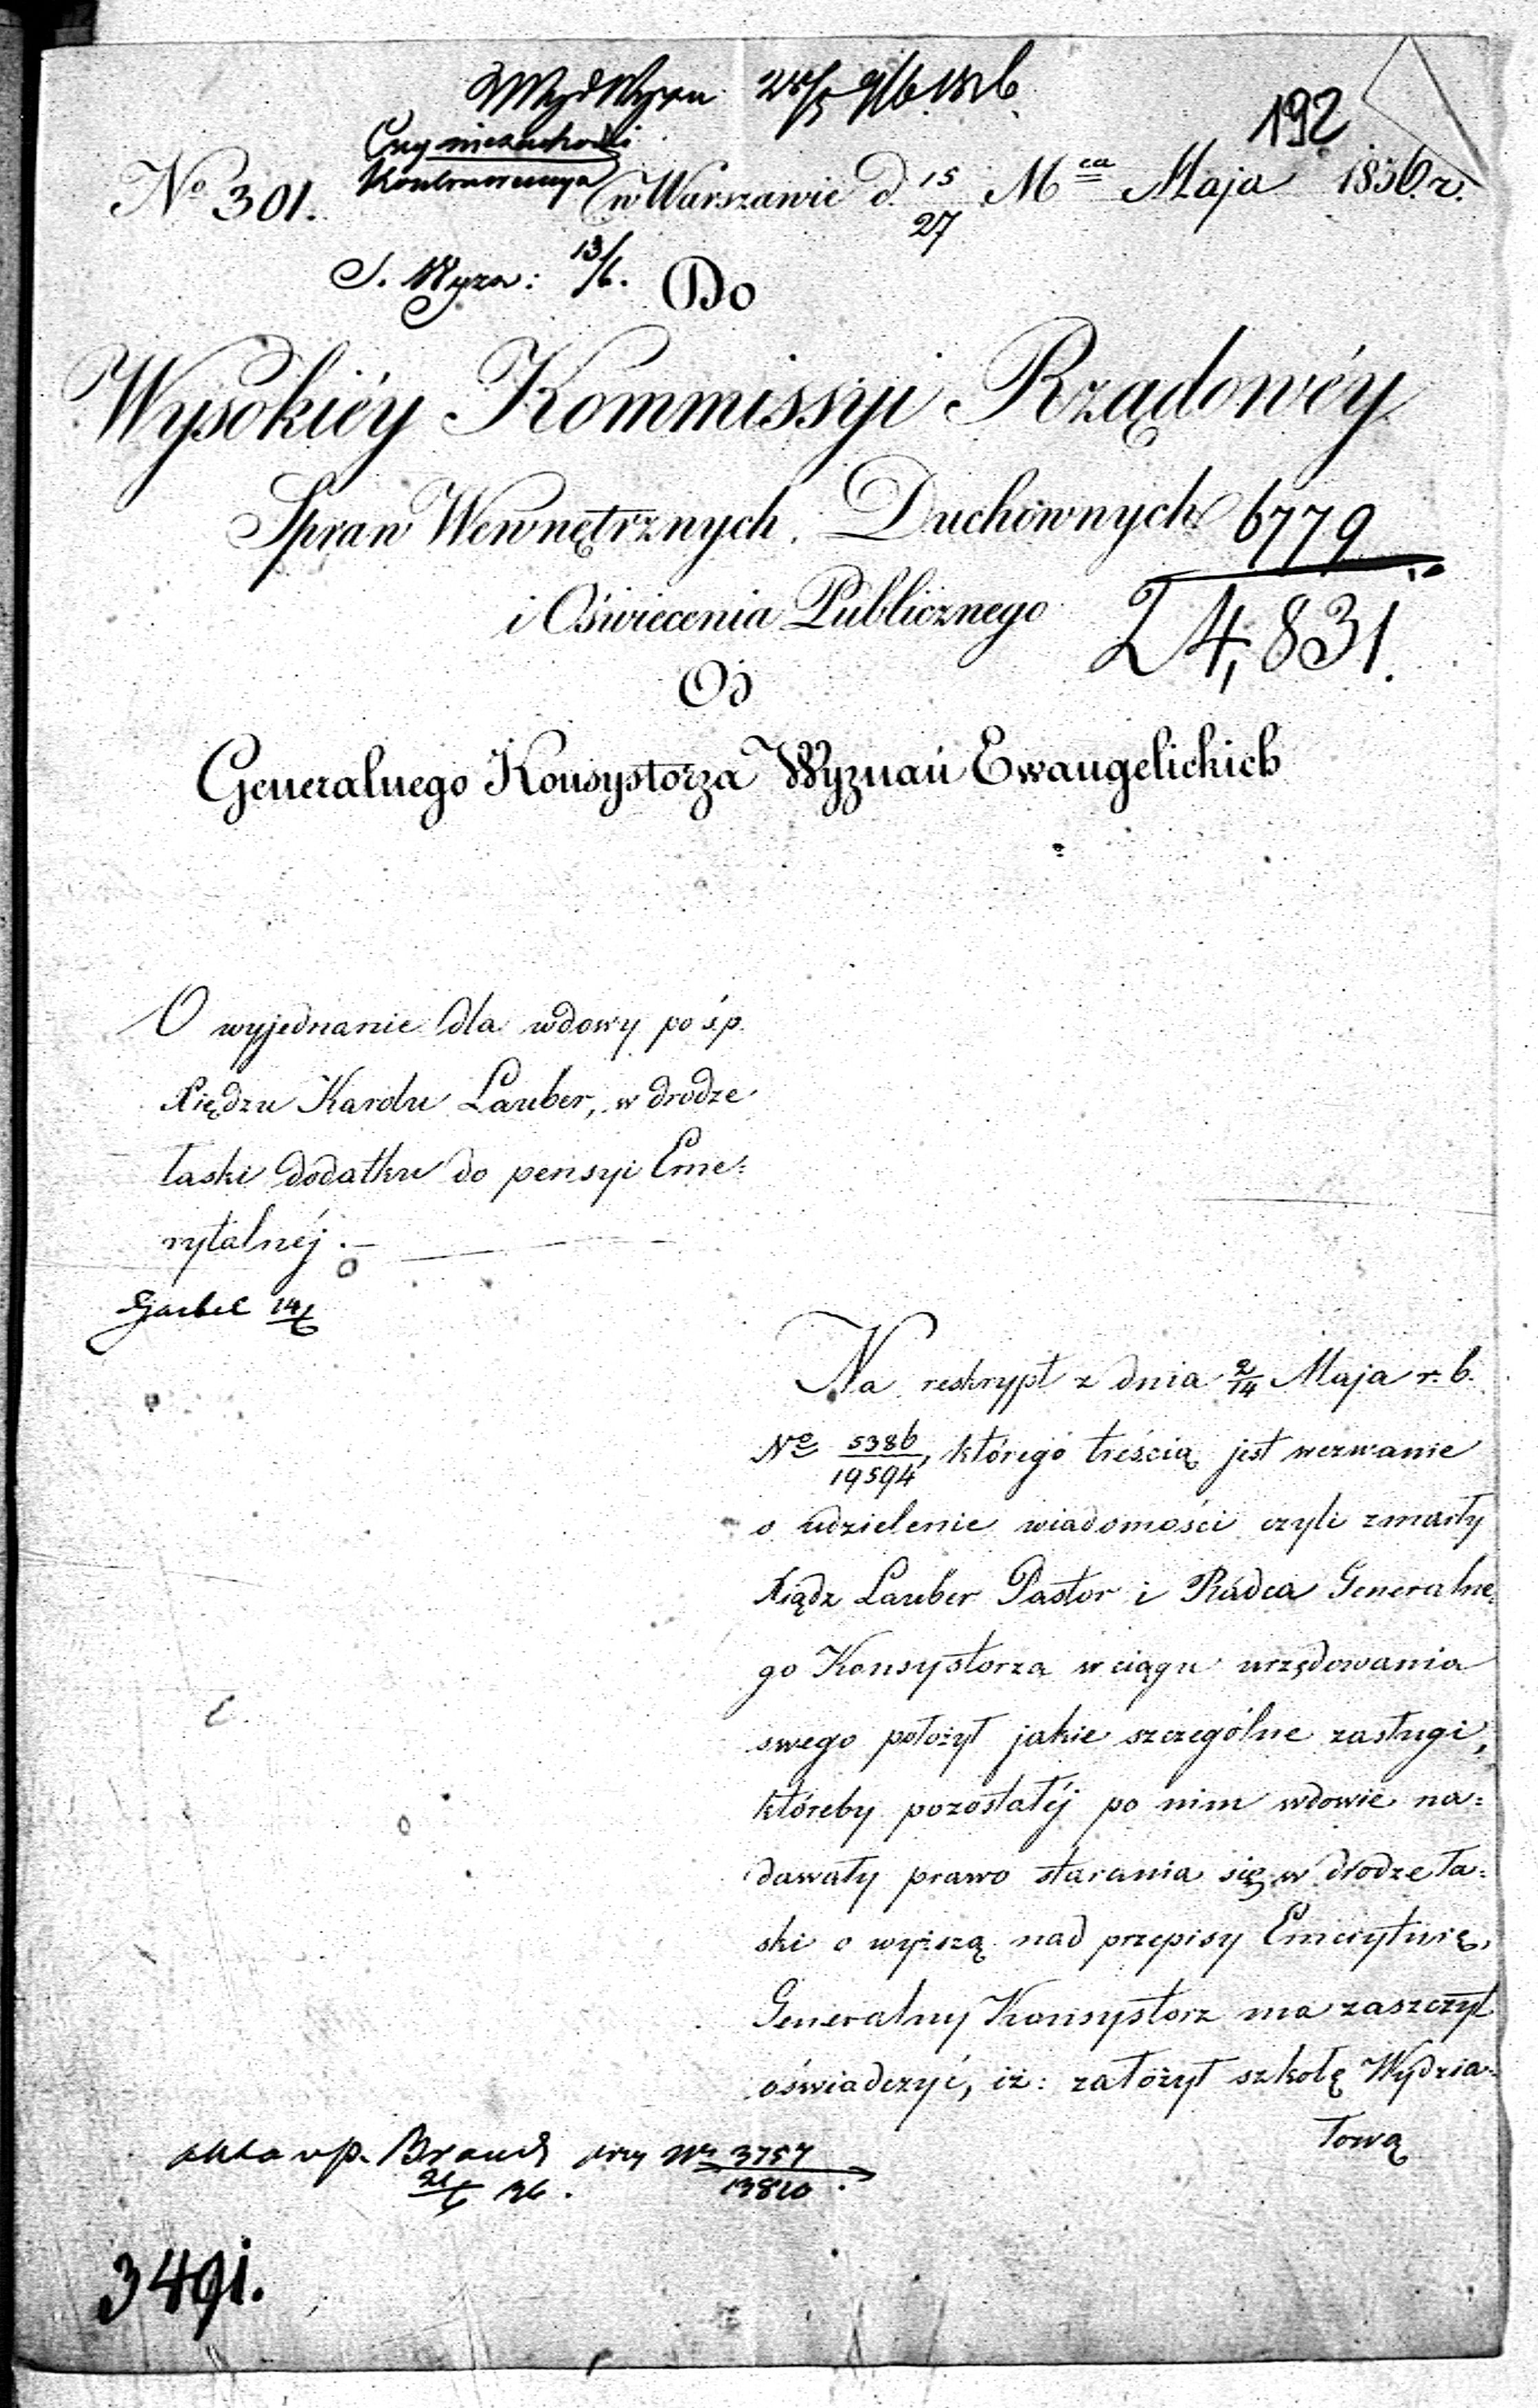 192
Czy niezachodzi
N<sup>o</sup> 301. w Warszawie d. 15/27 M<sup>ca</sup> Maja 1836 r.
13/6.
Do
Wysokiéy Kommissyi Rządowéy
Spraw Wewnętrznych, Duchownych
6779
i Oświecenia Publicznego
24,831.
Od
Generalnego Konsystorza Wyznań Ewangelickich
O wyjednanie dla wdowy po ś.p.
Xiędzu Karolu Lauber, w drodze
łaski dodatku do pensyi Eme=
rytalnéj.—
Na reskrypt z dnia 2/14 Maja r. b.
N<sup>o</sup> 5386/19594, którego treścią jest wezwanie
o udzielenie wiadomości czyli zmarły
Xiądz Lauber Pastor i Radca Generalne=
go Konsystorza w ciągu urzędowania
swego położył jakie szczególne zasługi,
któreby pozostałéj po nim wdowie na=
dawały prawo starania się w drodze ła=
ski o wyższą nad przepisy Emeryturę,
Generalny Konsystorz ma zaszczyt
oświadczyć, iż: założył szkołę Wydzia=
łową
przy N<sup>r</sup> 3757/13810.
3491.